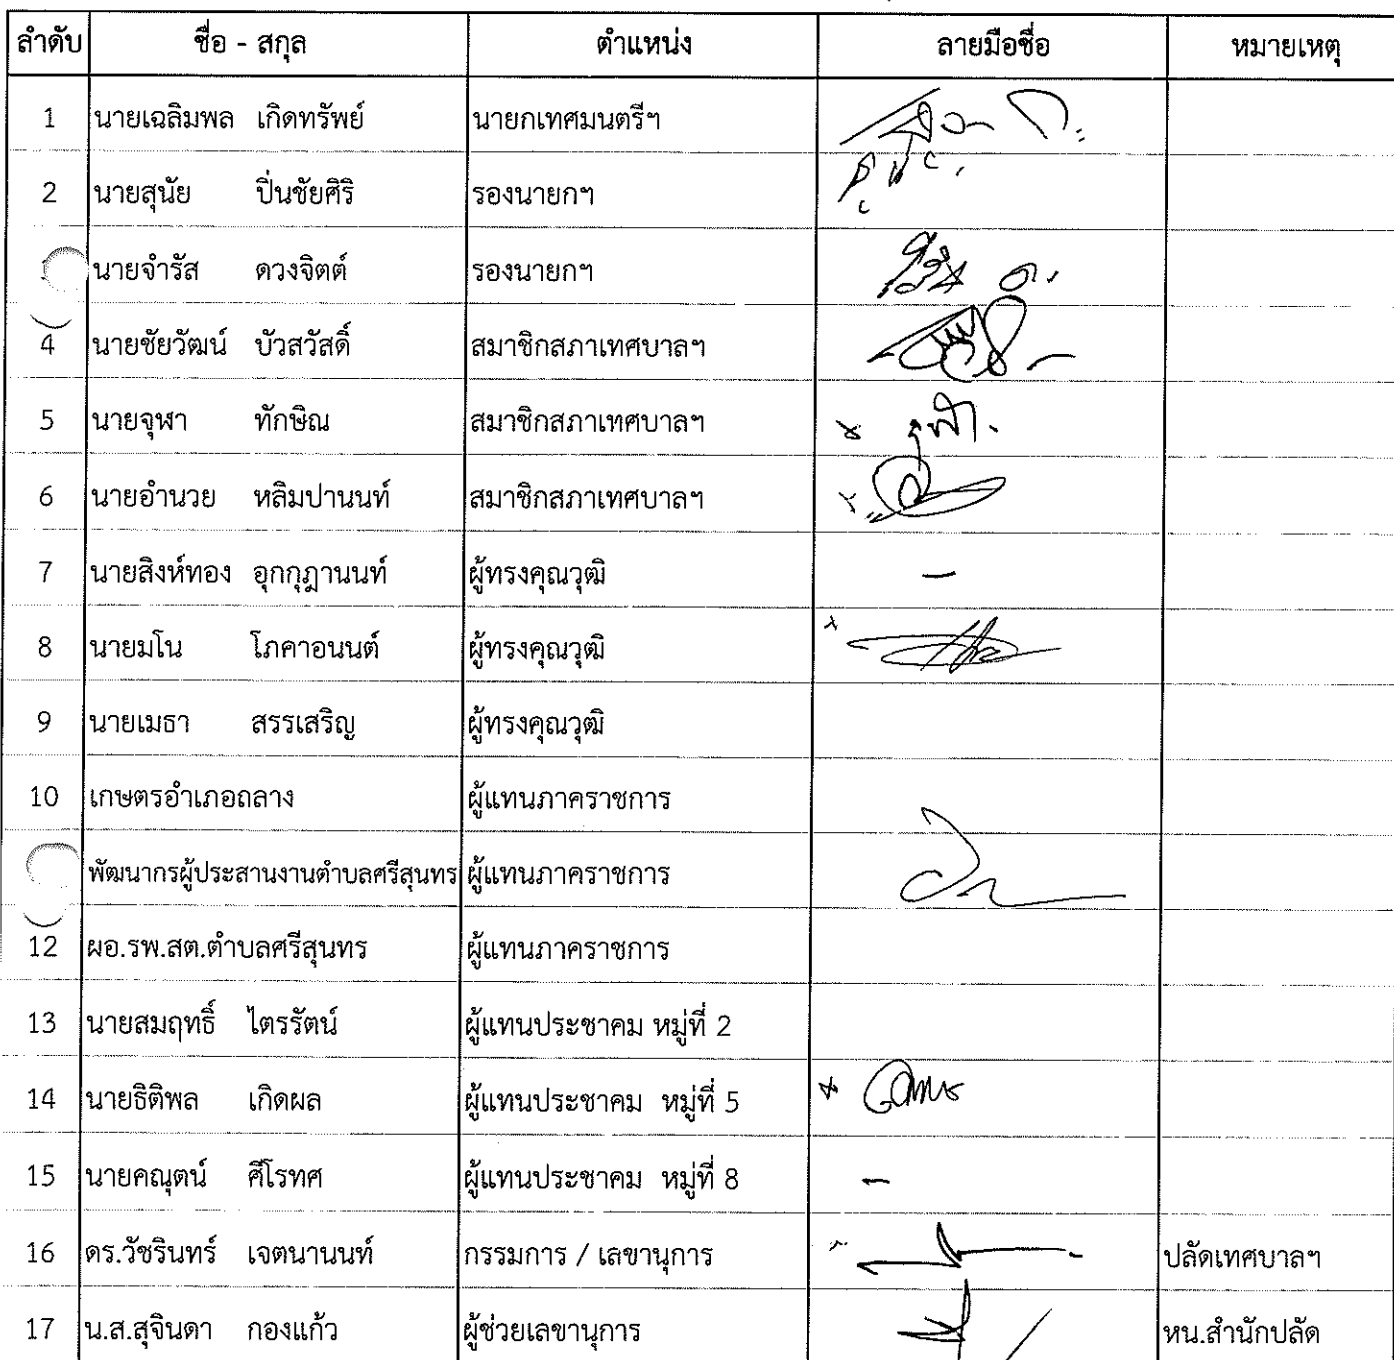 ลำดับ ชื่อ - สกุล ตำแหน่ง ลายมือชื่อ หมายเหตุ
1 นายเฉลิมพล เกิดทรัพย์ นายกเทศมนตรีฯ
2 นายสุนัย ปิ่นชัยศิริ รองนายกฯ
นายจำรัส ดวงจิตต์ รองนายกฯ
4 นายชัยวัฒน์ บัวสวัสดิ์ สมาชิกสภาเทศบาลฯ
5 นายจุฬา ทักษิณ สมาชิกสภาเทศบาลฯ
6 นายอำนวย หลิมปานนท์ สมาชิกสภาเทศบาลฯ
7 นายสิงห์ทอง อุกกุฎานนท์ ผู้ทรงคุณวุฒิ –
8 นายมโน โภคาอนนต์ ผู้ทรงคุณวุฒิ
9 นายเมธา สรรเสริญ ผู้ทรงคุณวุฒิ
10 เกษตรอำเภอถลาง ผู้แทนภาคราชการ
พัฒนากรผู้ประสานงานตำบลศรีสุนทร ผู้แทนภาคราชการ
12 ผอ.รพ.สต.ตำบลศรีสุนทร ผู้แทนภาคราชการ
13 นายสมฤทธิ์ ไตรรัตน์ ผู้แทนประชาคม หมู่ที่ 2
14 นายธิติพล เกิดผล ผู้แทนประชาคม หมู่ที่ 5
15 นายคณุตน์ ศีโรทศ ผู้แทนประชาคม หมู่ที่ 8 –
16 ดร.วัชรินทร์ เจตนานนท์ กรรมการ / เลขานุการ ปลัดเทศบาลฯ
17 น.ส.สุจินดา กองแก้ว ผู้ช่วยเลขานุการ หน.สำนักปลัด